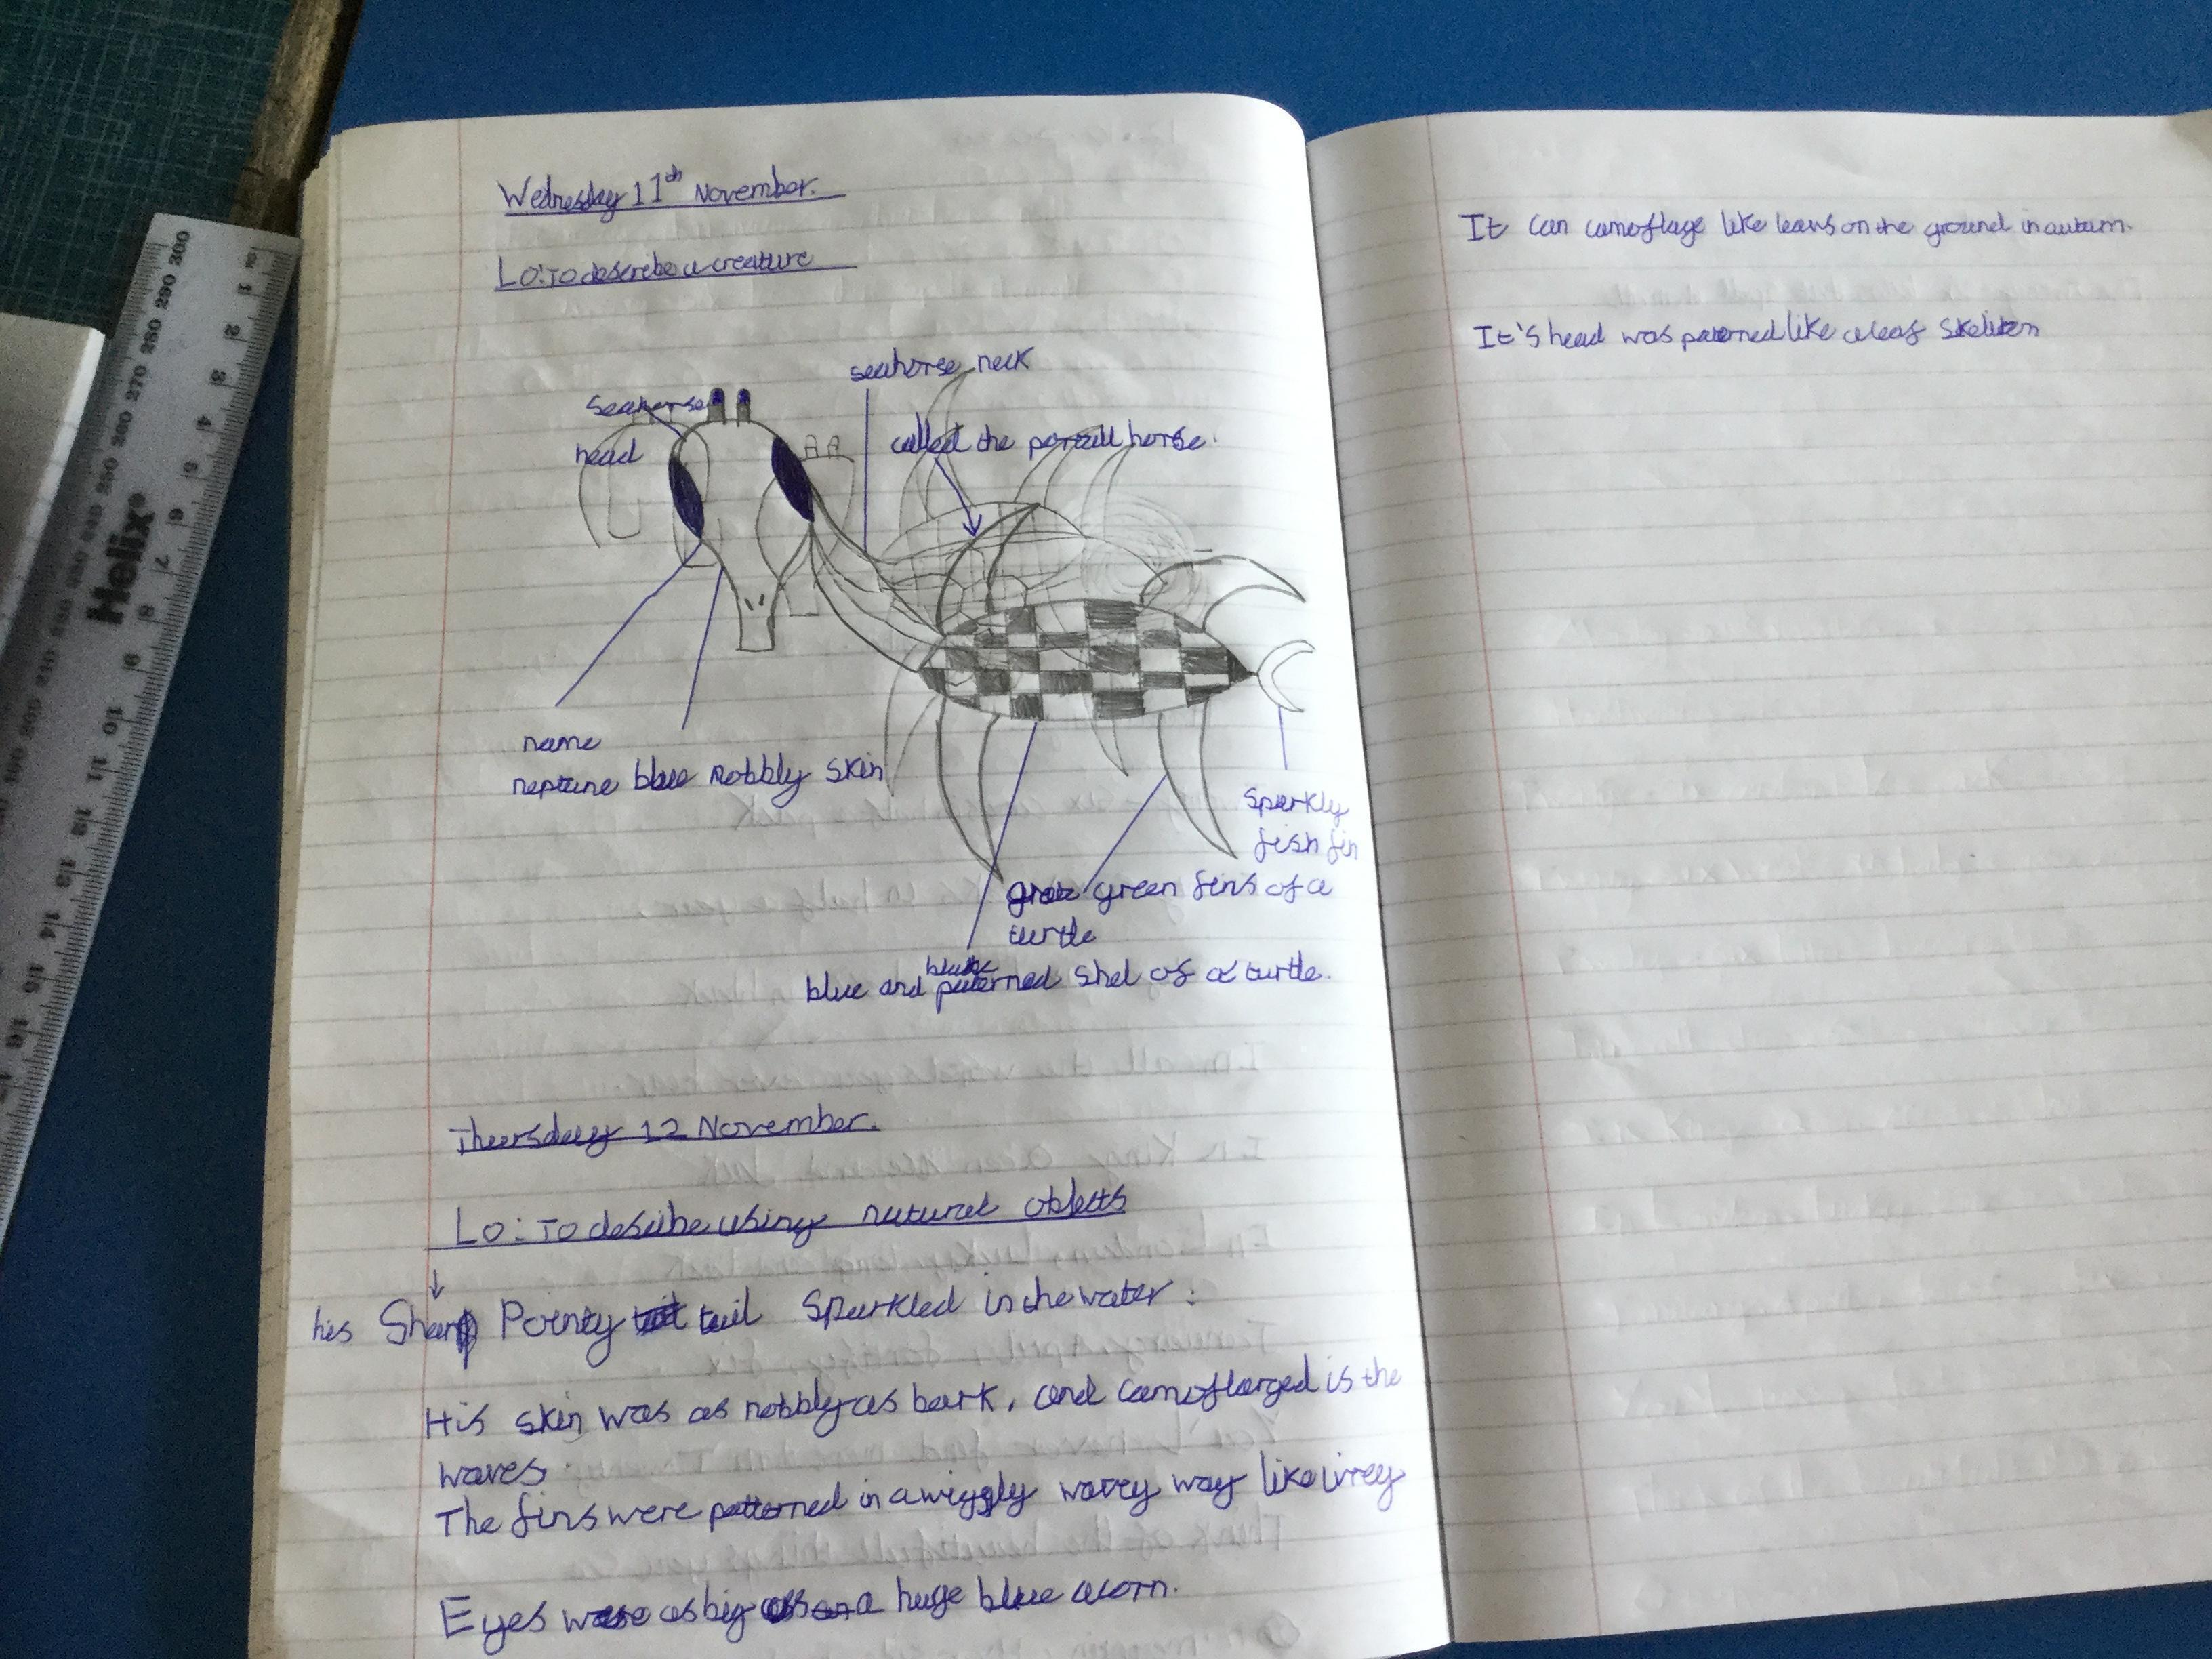 Wednesday 11th November.
Lo: To describe a creature
seahorse neck
seahorse
head
called the portall horse.
name
neptune blue nobbly skin
sparkly
fish fin
green fins of a
turtle
black
blue and paterned shel of a turtle.
Thursday 12 November.
Lo: To desribe using natural objects
his Sharp Pointy tail Sparkled in the water.
His skin was as nobbly as bark, and camoflarged is the
waves.
The fins were patterned in a wiggly wavey way like ivrey
Eyes were as big as a huge blue acorn.
It can camoflage like leavs on the ground in autum.
It's head was paterned like a leaf skeliten
Helix
300 290 280 270 260 250
1 2 3 4 5 6 7 8 9 10 11 12 13 14 15 16